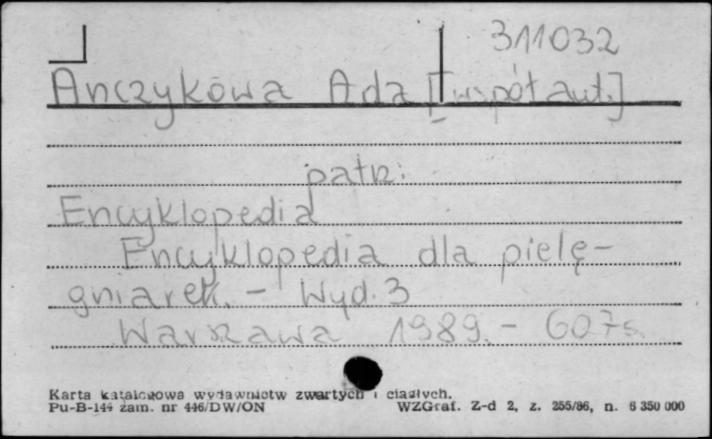 311032
Anczykowa Ada [współaut.]
patrz:
Encyklopedia
Encyklopedia dla pielę-
gniarek. - Wyd. 3
Warszawa 1989. - 607s.
Karta katalogowa wydawnictw zwartych i ciągłych.
Pu-B-144 zam. nr 446/DW/ON WZGraf. Z-d 2, z. 255/86, n. 6 350 000